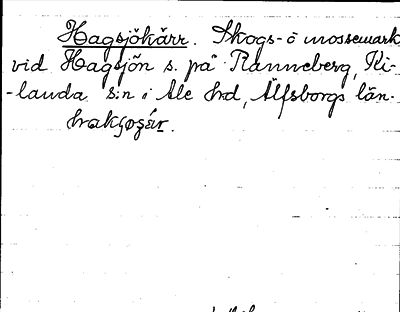 Hagsjökärr. Skogs- o mossemark
vid Hagsjön s. på Ranneberg, Ki-
-landa s:n i Ale hd, Älfsborgs län.